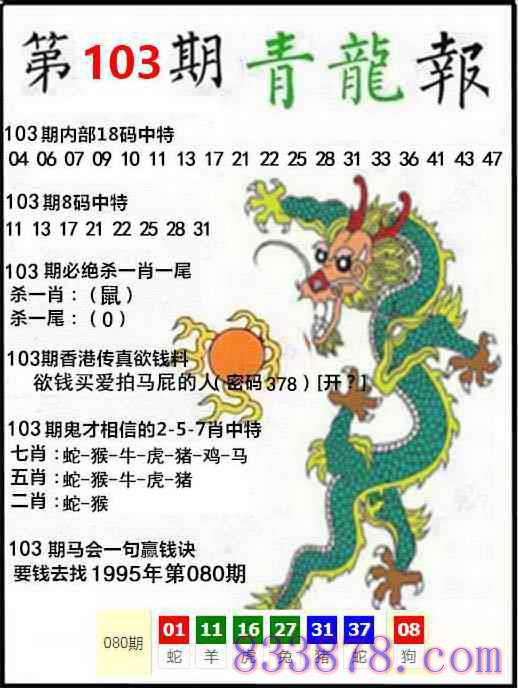 第103期 青龍報
103期内部18码中特
04 06 07 09 10 11 13 17 21 22 25 28 31 33 36 41 43 47
103期8码中特
11 13 17 21 22 25 28 31
103期必绝杀一肖一尾
杀一肖：(鼠)
杀一尾：(0)
103期香港传真欲钱料
欲钱买爱拍马屁的人(密码378)[开?]
103期鬼才相信的2-5-7肖中特
七肖：蛇-猴-牛-虎-猪-鸡-马
五肖：蛇-猴-牛-虎-猪
二肖：蛇-猴
103期马会一句赢钱诀
要钱去找1995年第080期
080期 01 11 16 27 31 37 08
蛇 羊 虎 兔 猪 蛇 狗
833878.com